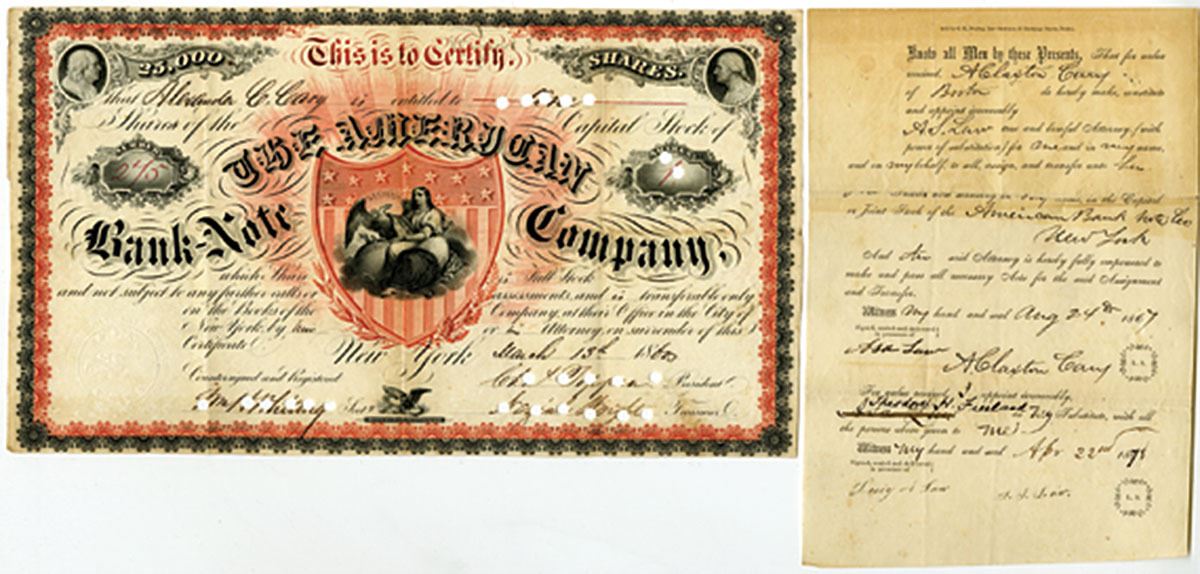 This is to Certify.
25,000 SHARES.
that Alexander C. Cary is entitled to One
Shares of the Capital Stock of
THE AMERICAN
245 1
Bank-Note Company,
which Shares is Full Stock
and not subject to any further calls or assessments, and is transferable only
on the Books of the Company, at their Office in the City of
New York, by or Attorney, on surrender of this
Certificate
New York March 13th 1860
Countersigned and Registered President
Secy
Know all Men by these Presents, That for value
received, A Claxton Cary
of Boston do hereby make, constitute
and appoint irrevocably
A. S. Law our and lawful Attorney (with
power of substitution) for me and in my name,
and in my behalf, to sell, assign, and transfer unto
Shares now standing in my name, in the Capital
or Joint Stock of the American Bank Note Co
New York
And said Attorney is hereby fully empowered to
make and pass all necessary Acts for the said Assignment
and Transfer.
Witness My hand and seal Aug 24th 1867
Signed, sealed and delivered
in presence of
Asa Law
A Claxton Cary
L. S.
For value received I appoint irrevocably
Theodore H. Freeland my Substitute, with all
the powers above given to me.
Witness My hand and seal Apr 22nd
Signed, sealed and delivered
in presence of
L. S.